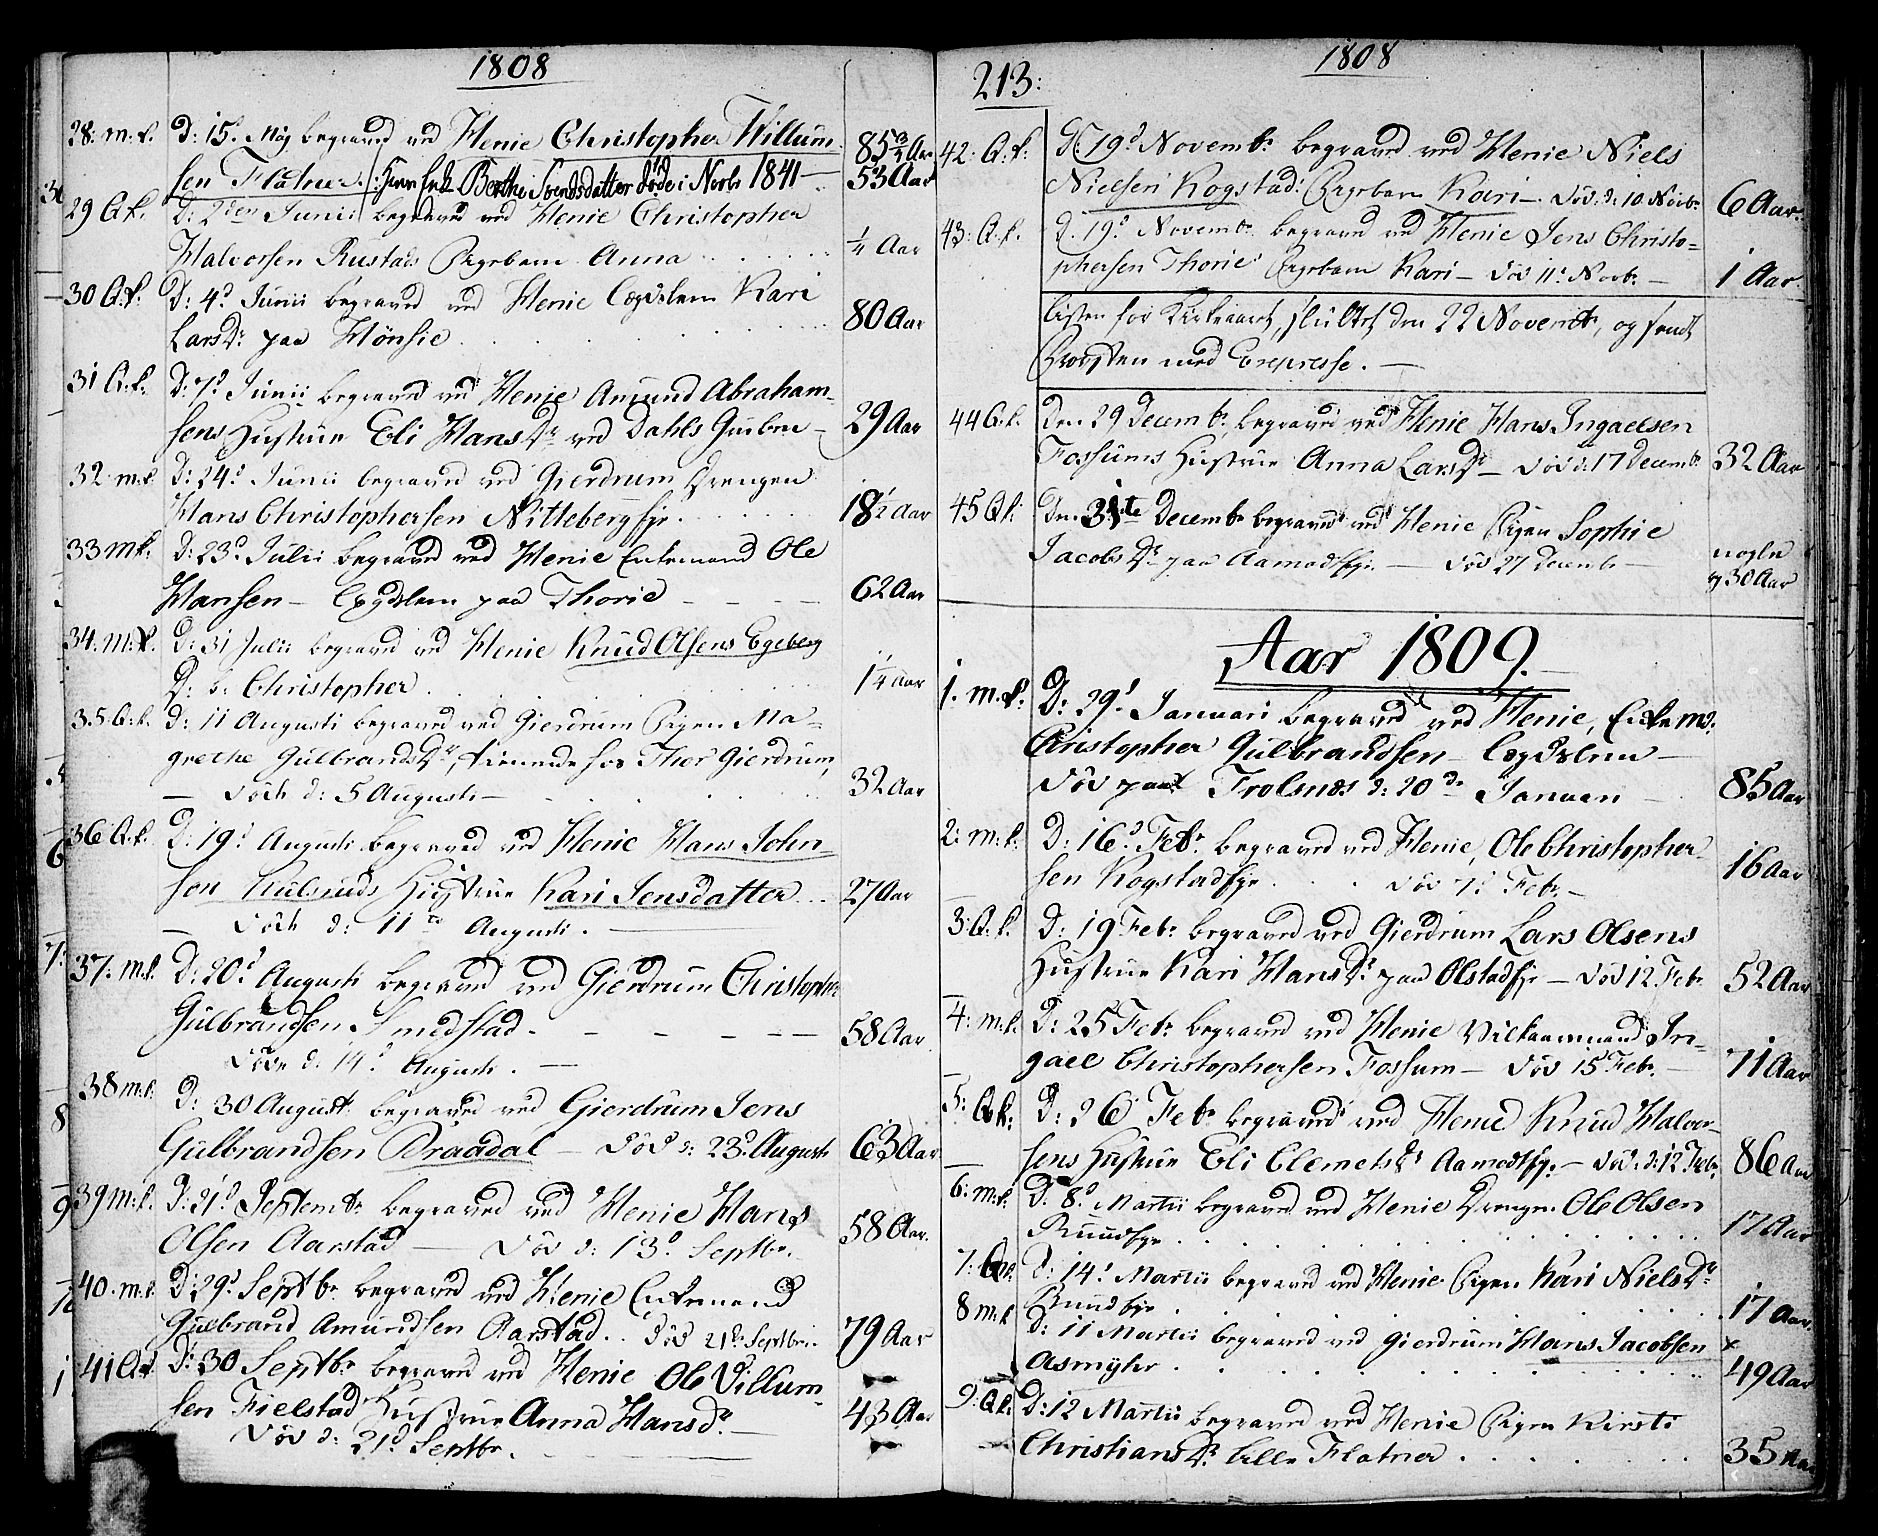 1808
28: m.k. D: 15d Maj begraved ved Henie Christopher Willum
sen Flatner. /: Hans Enke Berthe Svendsdatter døde i Novbr 1841 — 53 Aar
29 Q.k. D: 2den Junii begraved ved Henie Christopher
Halvorsen Rustads Pigebarn Anna ¼ Aar
30 Q.k. D: 4d Junii begraved ved Henie Lægdslem Kari
Lars Dr paa Hønsie 80 Aar
31 Q.k. D: 7d Junii begraved ved Henie Amund Abraham-
sens Hustrue Eli Hans Dr ved Dahls Gruben — 29 Aar
32 m.k. D: 24d Junii begraved ved Gierdrum Drengen
Hans Christophersen Nittebergeje 18½ Aar
33 m.k. D: 23d Julii begraved ved Henie Enkemand Ole
Hansen — Lægdslem paa Thorie 62 Aar
34. m.k. D: 31 Julii begraved ved Henie Knud Olsens Egeberg
D. b. Christopher 1¼ Aar
35. Q.k. D: 11 Augusti begraved ved Gierdrum Pigen Ma-
grethe Gulbrands Dr, tienende hos Thor Gierdrum,
— Døde d: 5 Augusti — 32 Aar
36 Q.k. D: 19d Augusti begraved ved Henie Hans John-
sen Kulsruds Hustrue Kari Jensdatter 27 Aar
— Døde d: 11te Augusti. —
37. m.k. D: 20d Augusti begraved ved Gierdrum Christopher
Gulbrandsen Smedstad. 58 Aar
Døde d: 14d Augusti. —
38 m.k. D: 30 August begraved ved Gierdrum Jens
Gulbrandsen Braadal — Død d: 23d Augusti 63 Aar
39 m.k. D: 21d Septembr begraved ved Henie Hans
Olsen Aarstad — Død d: 13d Septbr. 58 Aar.
40. m.k. D: 29d Septbr begraved ved Henie Enkemand
Gulbrand Amundsen Aarstad. Død 21de Septbr. 79 Aar
41 Q.k. D: 30 Septbr begraved ved Henie Ole Villum-
sen Fielstad Hustrue Anna Hansdr. — 43 Aar
Død d: 21d Septbr.
213:
1808
42. Q.k. D. 19d Novembr begraved ved Henie Niels
Nielsen Kogstad: Pigebarn Kari — død. d: 10 Novbr 6 Aar.
43. Q.k. D. 19d Novembr begraved ved Henie Jens Christo-
phersen Thorie Pigebarn Kari — død 11d Novbr — 1 Aar
Listen for Kirkeaaret, sluttet den 22 Novembr, og sendt
Provsten med Expresse. —
44 Q.k. Den 29 Decembr begraved ved Henie Hans Ingaelsen
Fossums Hustrue Anna Lars Dr — død d: 17 Decembr 32 Aar
45 Q.k. Den 31te Decembr begraved ved Henie Pigen Sophie
Jacobs Dr paa Aamodteje. — død 27 Decembr — nogle
og 30 Aar
Aar 1809.
1. m.k. D: 29d Januari begraved ved Henie, Enkemd.
Christopher Gulbrandsen — Lægdslem —
død paa Trolsnæs d: 20de Januari 85 Aar
2: m.k. D: 16d Febr begraved ved Henie, Ole Christopher-
sen Kogstadeje død 7d Febr. — 16 Aar
3: Q.k. D: 19 Febr begraved ved Gierdrum Lars Olsens
Hustrue Kari Hans Dr paa Olstadeje — død 12 Febr 52 Aar
4: m.k. D: 25 Febr begraved ved Henie Vilkaarmand In-
gael Christophersen Fossum — død 15 Febr. — 71 Aar
5: Q.k. D: 26 Febr begraved ved Henie Knud Halvor-
sens Hustrue Eli Clemets Dr Aamodteje. — død. d: 12 Febr. 86 Aar
6: m.k. D: 8d Martii begraved ved Henie Drengen Ole Olsen
Ruudeje 17 Aar
7: Q.k. D: 14d Martii begraved ved Henie Pigen Kari Niels Dr
Ruudeje 17 Aar.
8 m.k. D: 11 Martii begraved ved Gierdrum Hans Jacobsen
Asmyhr 49 Aar
9. Q.k. D: 12 Martii begraved ved Henie Pigen Kirsti
Christians Dr Lille Flatner 35 Aar